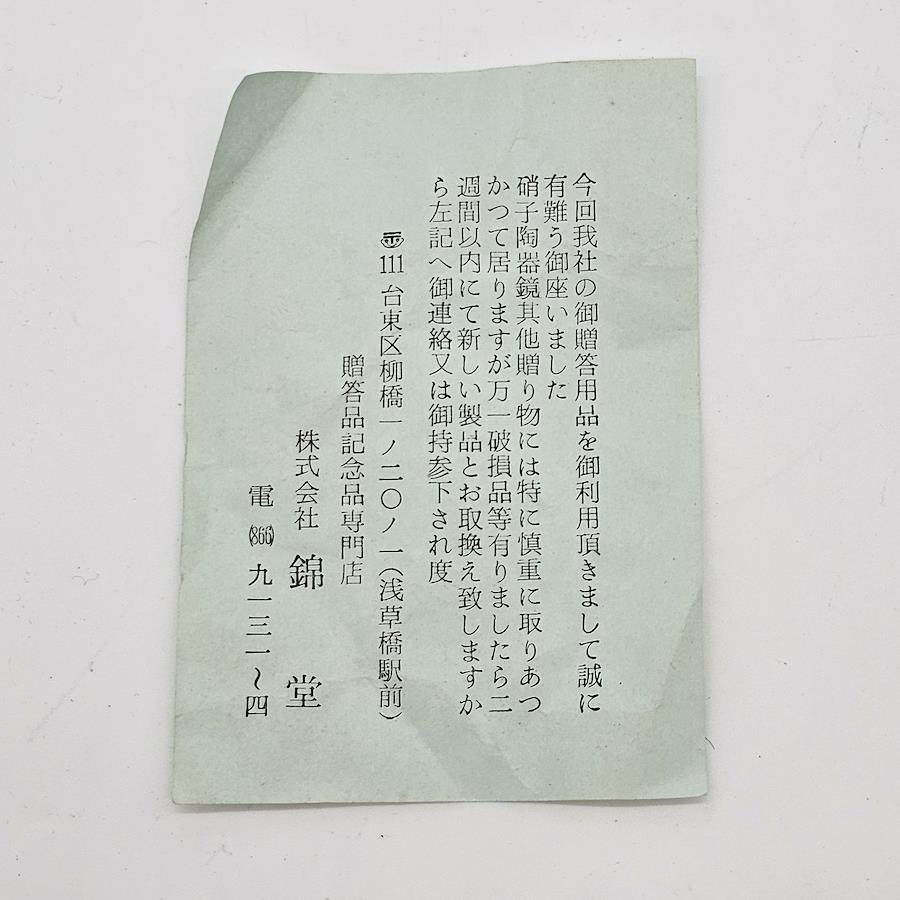 今回我社の御贈答用品を御利用頂きまして誠に
有難う御座いました
硝子陶器鏡其他贈り物には特に慎重に取りあつ
かつて居りますが万一破損品等有りましたら二
週間以内にて新しい製品とお取換え致しますか
ら左記へ御連絡又は御持参下され度
〠111 台東区柳橋一ノ二〇ノ一(浅草橋駅前)
贈答品記念品専門店
株式会社 錦堂
電(866)九一三一〜四